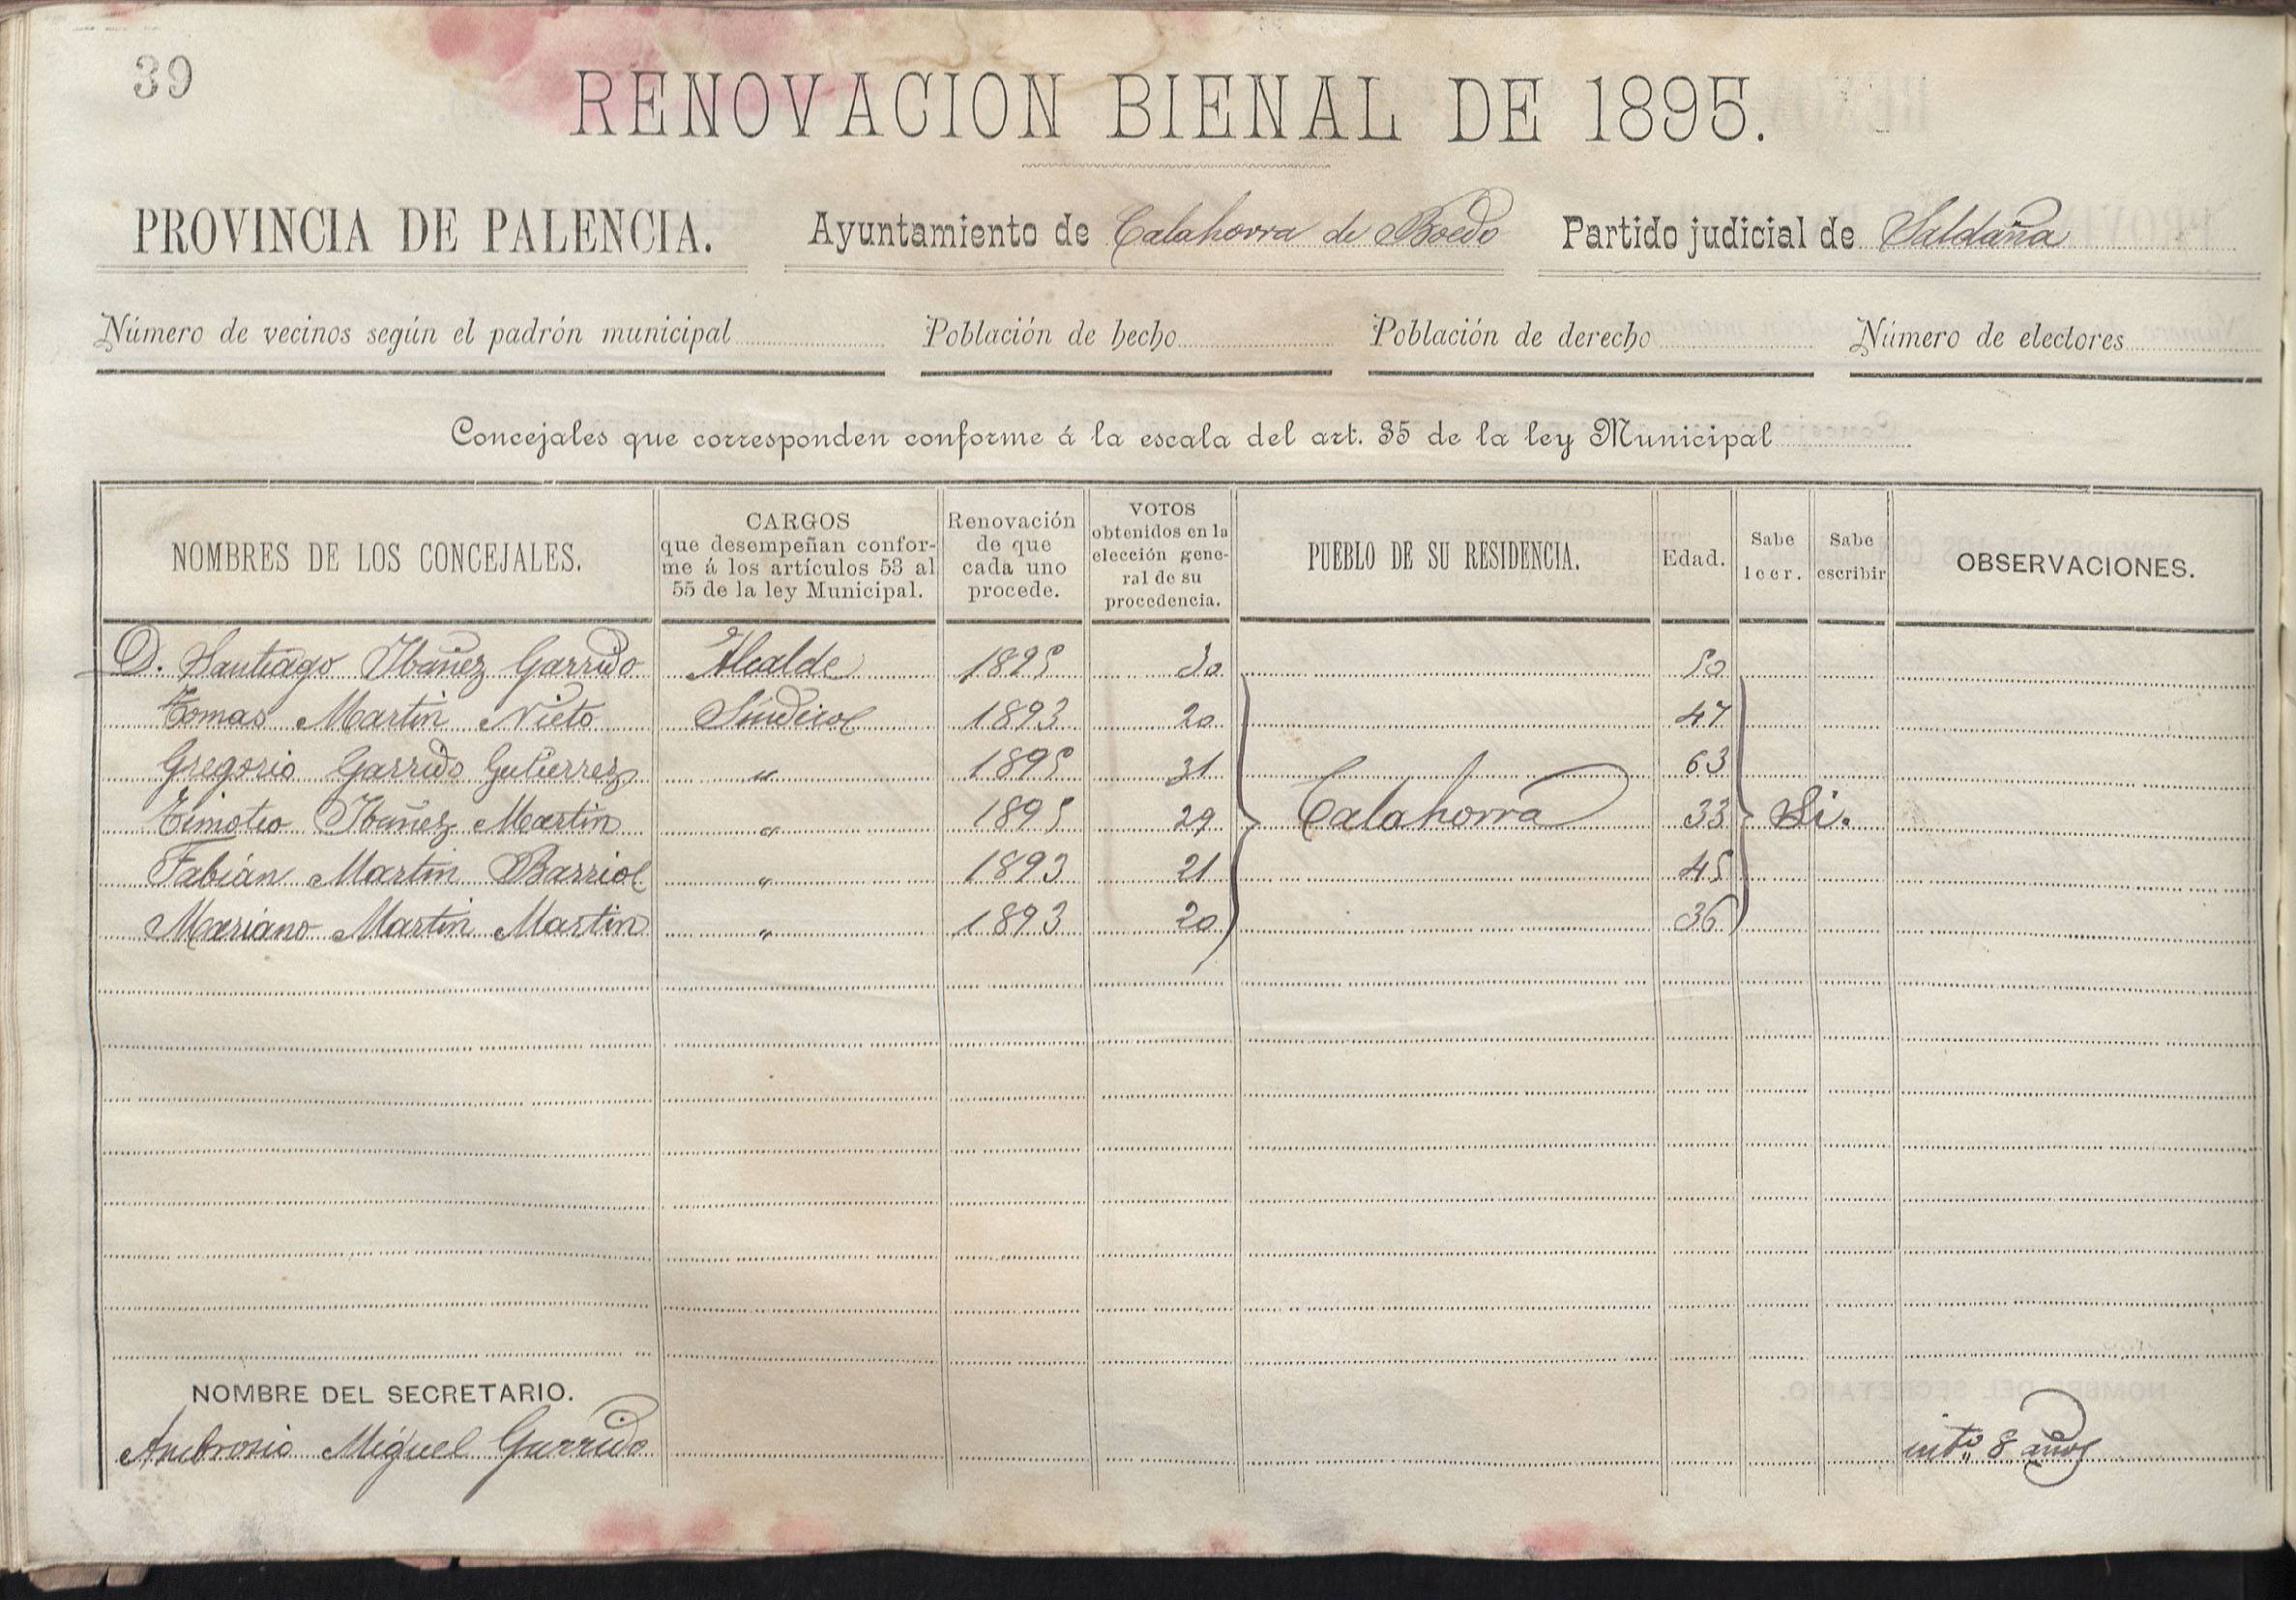 39
RENOVACION BIENAL DE 1895.
PROVINCIA DE PALENCIA. Ayuntamiento de Calahorra de Boedo Partido judicial de Saldaña
Número de vecinos según el padrón municipal Población de hecho Población de derecho Número de electores
Concejales que corresponden conforme á la escala del art. 35 de la ley Municipal
NOMBRES DE LOS CONCEJALES.
CARGOS
que desempeñan confor-
me á los artículos 53 al
55 de la ley Municipal.
Renovación
de que
cada uno
procede.
VOTOS
obtenidos en la
elección gene-
ral de su
procedencia.
PUEBLO DE SU RESIDENCIA.
Edad.
Sabe
leer.
Sabe
escribir
OBSERVACIONES.
D. Santiago Ibañez Garrido Alcalde 1895 30 50
Tomas Martin Nieto Síndico 1893 20 47
Gregorio Garrido Gutierrez " 1895 31 63
Timoteo Ibañez Martin " 1895 29 Calahorra 33 Si.
Fabián Martin Barrio " 1893 21 45
Mariano Martin Martin " 1893 20 36
NOMBRE DEL SECRETARIO.
Ambrosio Miguel Garrido intº 8 años